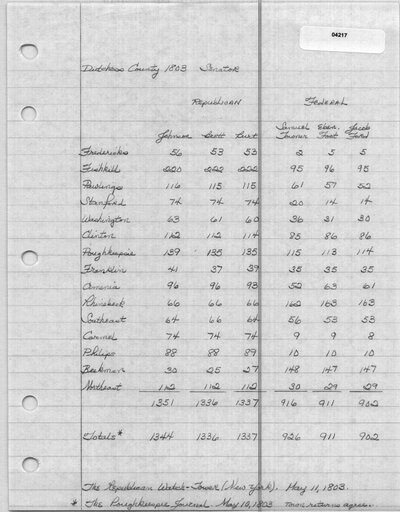 04217
Dutchess County 1803 Senators
Republican Federal
Johnson Scott Burt Samuel Towner Eben. Foot Jacob Ford
Fredericks 56 53 53 2 5 5
Fishkill 220 222 222 95 96 95
Pawlings 116 115 115 61 57 52
Stanford 74 74 74 20 14 14
Washington 63 61 60 36 31 30
Clinton 112 112 114 85 86 86
Poughkeepsie 139 135 135 115 113 114
Franklin 41 37 39 35 35 35
Amenia 96 96 93 52 63 61
Rhinebeck 66 66 66 162 163 163
Southeast 64 66 64 56 53 53
Carmel 74 74 74 9 9 8
Philips 88 88 89 10 10 10
Beekman 30 25 27 148 147 147
Northeast 112 112 112 30 29 29
1351 1336 1337 916 911 902
Totals* 1344 1336 1337 926 911 902
The Republican Watch-Tower (New York). May 11, 1803.
* The Poughkeepsie Journal. May 10, 1803 Town returns agree.